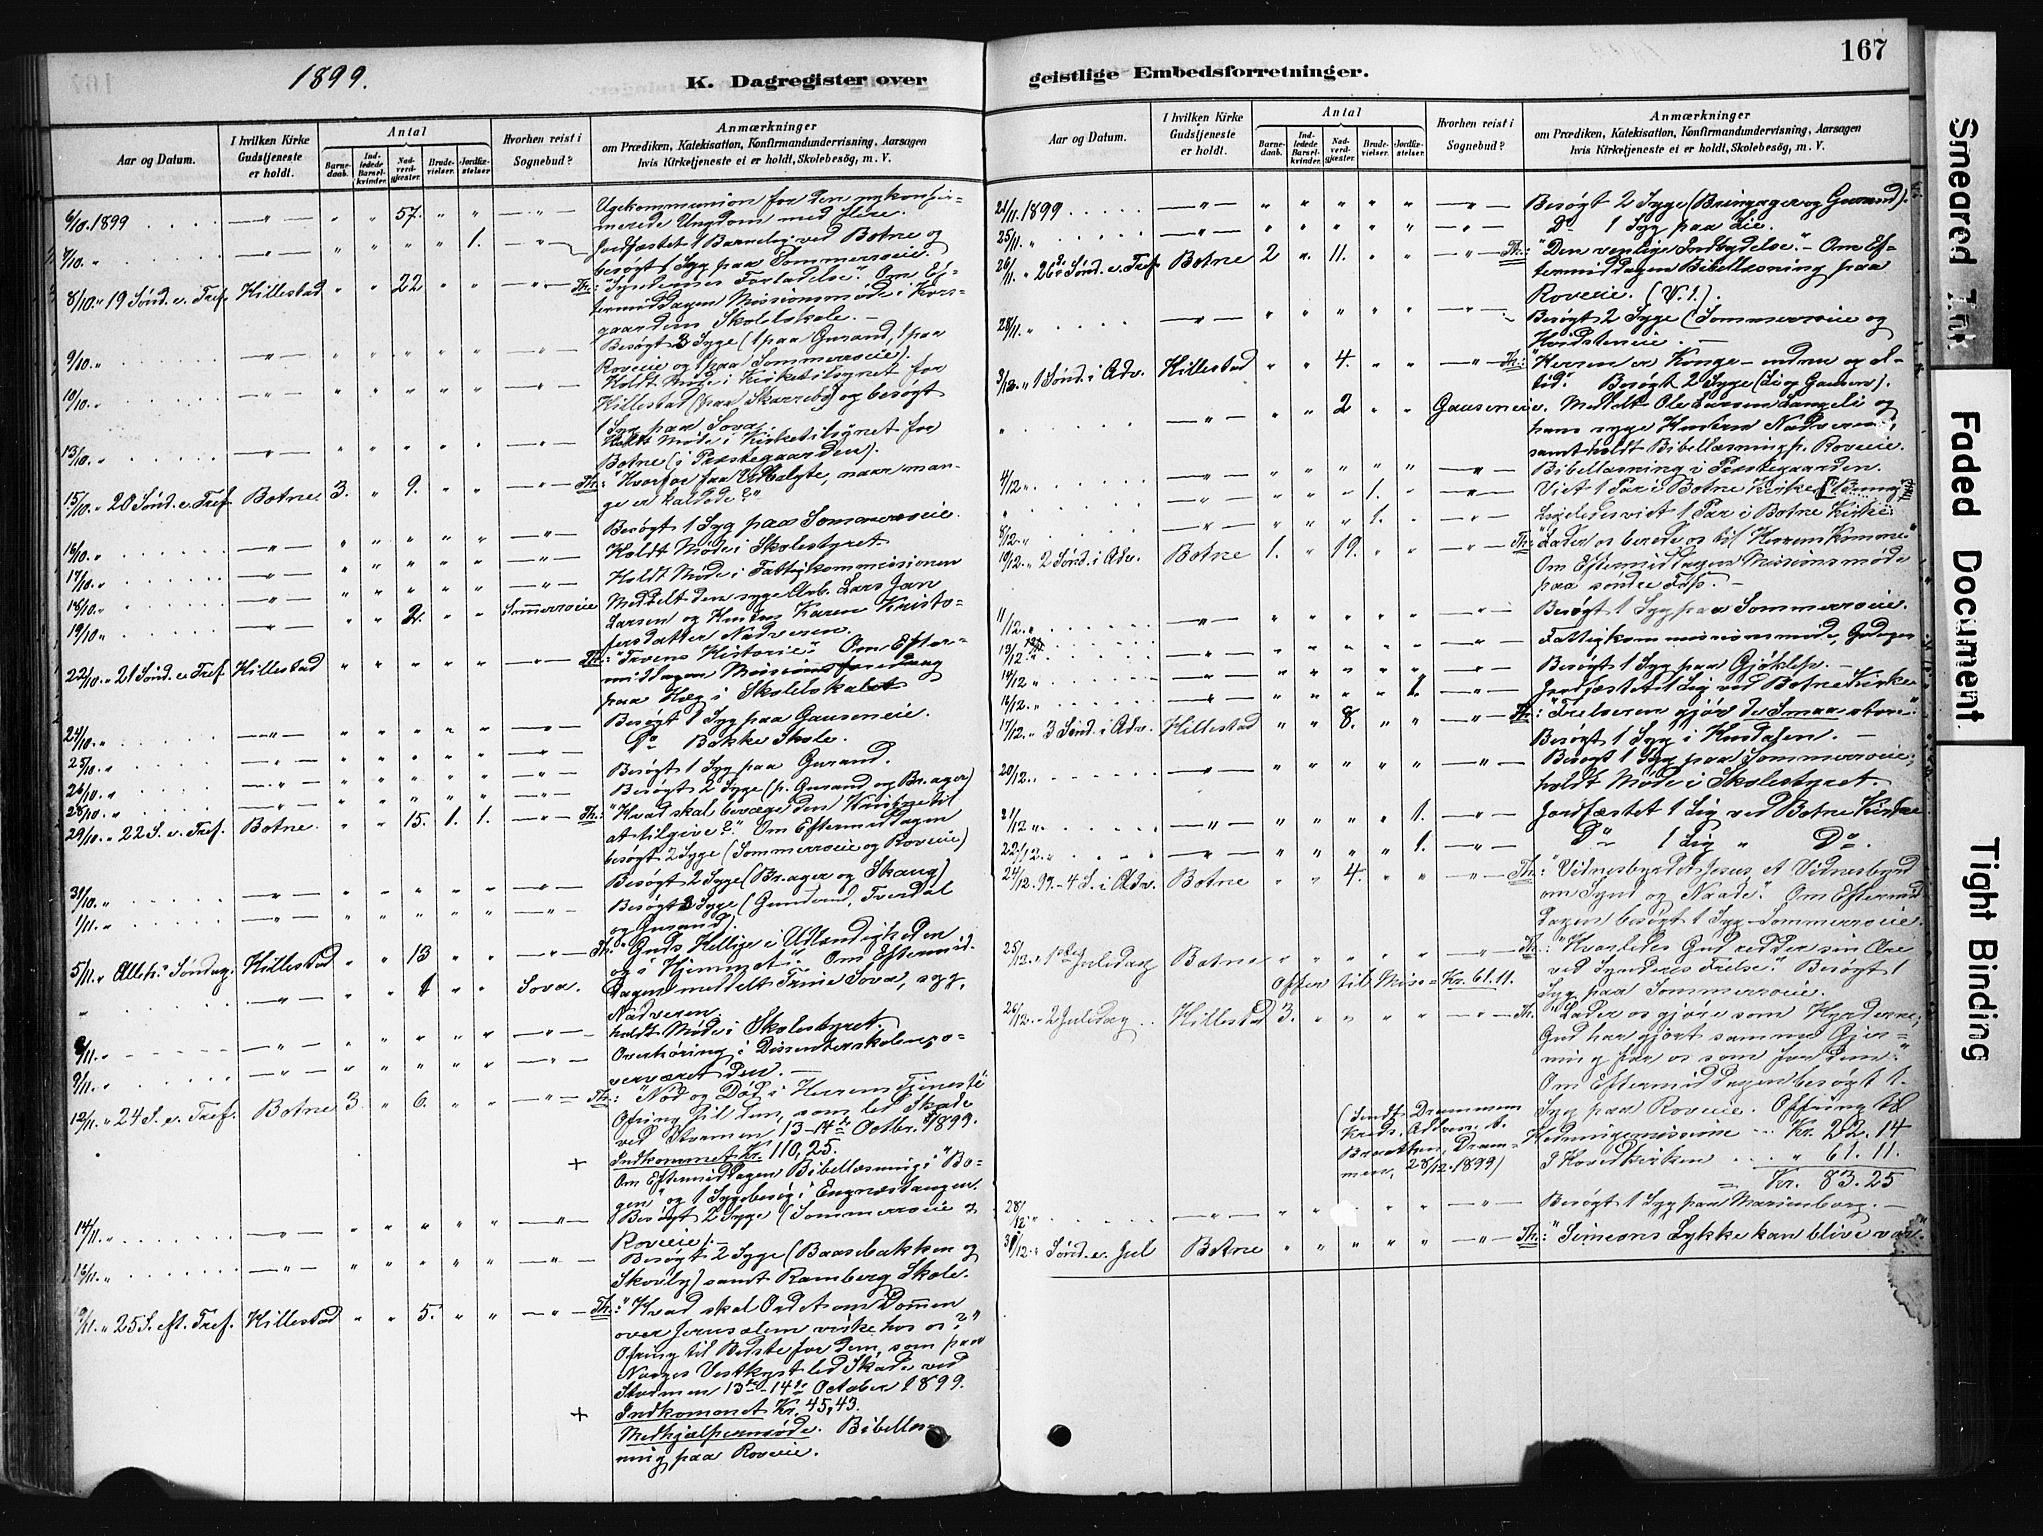 1899.
K. Dagregister over
Aar og Datum.
I hvilken Kirke Gudstjeneste er holdt.
Antal
Barnedaab.
Indledede Barselkvinder.
Nadverdgjester.
Brudevielser.
Jordfæstelser.
Hvorhen reist i Sognebud?
Anmærkninger
om Prædiken, Katekisation, Konfirmandundervisning, Aarsagen
hvis Kirketjeneste ei er holdt, Skolebesøg, m. V.
6/10. 1899 57. Ugekommunion for den nykonfir-
merede Ungdom med flere.
7/10. " 1. Jordfæstet 1 Barnelig ved Botne og
besøgt 1 Syg paa Sommerroeie.
8/10. " 19 Sønd. e. Tref. Hillestad 22 Th: "Syndernes Forladelse". Om Ef-
termiddagen Missionsmøde i Kors-
gaardens Skolelskole. —
9/10. " Besøgt 3 Syge (1 paa Gurand, 1 paa
Roveie og 1 paa Sommerroeie).
10/10. " Holdt Møde i Kirketilsynet for
Hillestad (paa Skarrebo) og besøgt
1 Syg paa Sova.
13/10. " Holdt Møde i Kirketilsynet for
Botne (i Præstegaarden).
15/10. " 20 Sønd. e. Tref. Botne 3. 9. Th: "Hvorfor faa Udvalgte, naar man-
ge er kaldede?"
16/10. " Besøgt 1 Syg paa Sommerroeie.
17/10. " Holdt Møde i Skolestyret.
18/10. " Holdt Møde i Fattigkommissionen
19/10. " 2. Sommerroeie Meddelt den syge Arb. Lars Jan
Larsen og Hustru Karen Kristo-
fersdatter Nadveren.
22/10. " 21 Sønd. e. Tref. Hillestad Th: "Troens Historie". Om Efter-
middagen Missionsforedrag
paa Hæg i Skolelskalet
24/10. " Besøgt 1 Syg paa Gauseneie.
25/10. " Do Bakke Skole.
26/10. " Besøgt 1 Syg paa Gurand.
28/10. " Besøgt 2 Syge (p. Gurand og Br. ager)
29/10. " 22 S. e. Tref. Botne. 15. 1. 1. Th: "Hvad skal bevæge den Kristne til
at tilgive?" Om Eftermiddagen
besøgt 2 Syge (Sommerroeie og Roveie)
31/10. " Besøgt 2 Syge (Br. ager og Skaug)
1/11. " Besøgt 3 Syge (Gunderud, Tverdal
og Gurand).
5/11. " Alleh: Søndag. Hillestad 13 Th: "Guds Hellige i Udlændigheden
og i Hjemmet". Om Eftermid-
" 1 Sova. dagen meddelt Trine Sova, syg,
Nadveren.
8/11. " holdt Møde i Skolestyret.
9/11. " Overhøring i Dissenterskolen, o-
verværet den. —
12/11. " 24 S. e. Tref. Botne 3 6. Th: "Nød og Død i Herrens Tjeneste
Ofring til dem, som led Skade
ved Stormen 13-14de Octbr. 1899.
+ Indkommet Kr. 110,25.
Om Eftermiddagen Bibellæsning i "Bo-
gen" og 1 Sygebesøg i Engnæstangen.
14/11. " Besøgt 2 Syge (Sommerroeie og
Roveie). —
16/11. " Besøgt 2 Syge (Baasebakken og
Skovly) samt Ramberg Skole.
" 25 S. eft. Tref. Hillestad 5. Th: "Hvad skal Ordet om Dommen
over Jerusalem virke hos os?"
Ofring til Bedste for dem, som paa
Norges Vestkyst led Skade ved
Stormen 13de-14de October 1899.
+ Indkommet Kr. 45,43.
Medhjælpermøde. Bibellæs-
ning paa Roveie.
167
geistlige Embedsforretninger.
Aar og Datum.
I hvilken Kirke Gudstjeneste er holdt.
Antal
Barnedaab.
Indledede Barselkvinder.
Nadverdgjester.
Brudevielser.
Jordfæstelser.
Hvorhen reist i Sognebud?
Anmærkninger
om Prædiken, Katekisation, Konfirmandundervisning, Aarsagen
hvis Kirketjeneste ei er holdt, Skolebesøg, m. V.
21/11. 1899 Besøgt 2 Syge (Bringager og Gurand).
25/11. " Do 1 Syg paa Lie.
26/11. " 26de Sønd. e. Tref. Botne 2 11. Th: "Den venlige Indbydelse". — Om Ef-
termiddagen Bibellæsning paa
Roveie. (V. 1.).
28/11. " Besøgt 2 Syge (Sommerroeie og
Hvidsteneie. —
3/12. " 1 Sønd. i Adv. Hillestad 4. Th: "Herren er Konge — endnu og al-
tid". Besøgt 2 Syge (Li og Gausen).
" 2 Gauseneie. Meddelt Ole Larsen Langeli og
hans syge Hustru Nadveren,
samt holdt Bibellæsning p. Roveie.
4/12. " Bibellæsning i Præstegaarden.
" 1. Viet 1 Par i Botne Kirke
8/12. " 1. Ligeledes viet 1 Par i Botne Kirke
10/12. " 2 Sønd. i Adv. Botne 1. 19. Th: "Lader os berede os til Herrens Komme"
Om Eftermiddagen Missionsmøde
paa søndre Fos. —
11/12. " Besøgt 1 Syg paa Sommerroeie.
12/12. " Fattigkommissionsmøde,
14/12. " Besøgt 1 Syg paa Gjøklep. —
16/12. " 1. Jordfæstet 1 Lig ved Botne Kirke
17/12. " 3 Sønd. i Adv. Hillestad 8. Th: "Frelseren gjør de Smaa store"
Besøgt 1 Syg i Hustasen. —
20/12. Besøgt 1 Syg paa Sommerroeie,
holdt Møde i Skolestyret.
21/12. " 1. Jordfæstet 1 Lig ved Botne Kirke
22/12. " 1. Do 1 Lig " Do.
24/12. 99. - 4 S. i Adv. Botne 4. Th: "Vidnesbyrdet Jesus, et Vidnesbyrd
om Synd og Naade". Om Eftermid-
dagen besøgt 1 Syg Sommerroeie.
25/12. " 1ste Juledag Botne Th: "Hvorledes Gud redder sin Ære
ved Synderes Frelse." Besøgt 1
Offer til Miss = Kr. 61.11. Syg paa Sommerroeie.
26/12. " 2 Juledag Hillestad 3. Th: "Lader os gjøre som Hyrderne,
Gud har gjort samme Gjer-
ning for os som for dem".
Om Eftermiddagen besøgt 1
Syg paa Roveie. Offring til
(Sendt Drammens Hedningemissionen Kr. 22.14
Kreds. Adresse: A. I Hovedkirken " 61.11.
Braathen, Dram- = Kr. 83.25
men, 28/12. 1899)
28/12 " Besøgt 1 Syg paa Marienborg. —
31/12. " Sønd. e. Jul Botne Th: "Simeons Lykke kan blive vor".
Smeared Ink
Faded Document
Tight Binding